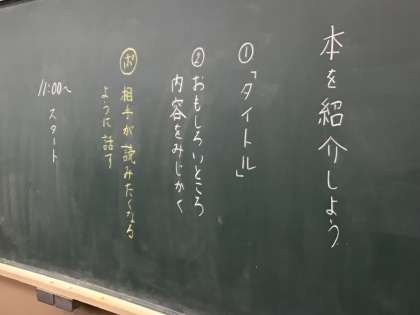 本を紹介しよう
①「タイトル」
②おもしろいところ
内容をみじかく
㋭相手が読みたくなる
ように話す
11:00〜
スタート